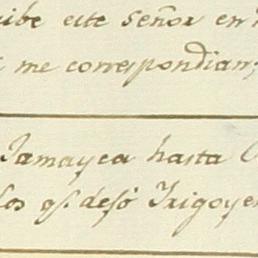 ibe este señor en
me correspondian;
Jamayca hasta
los qs. desó Irigoye